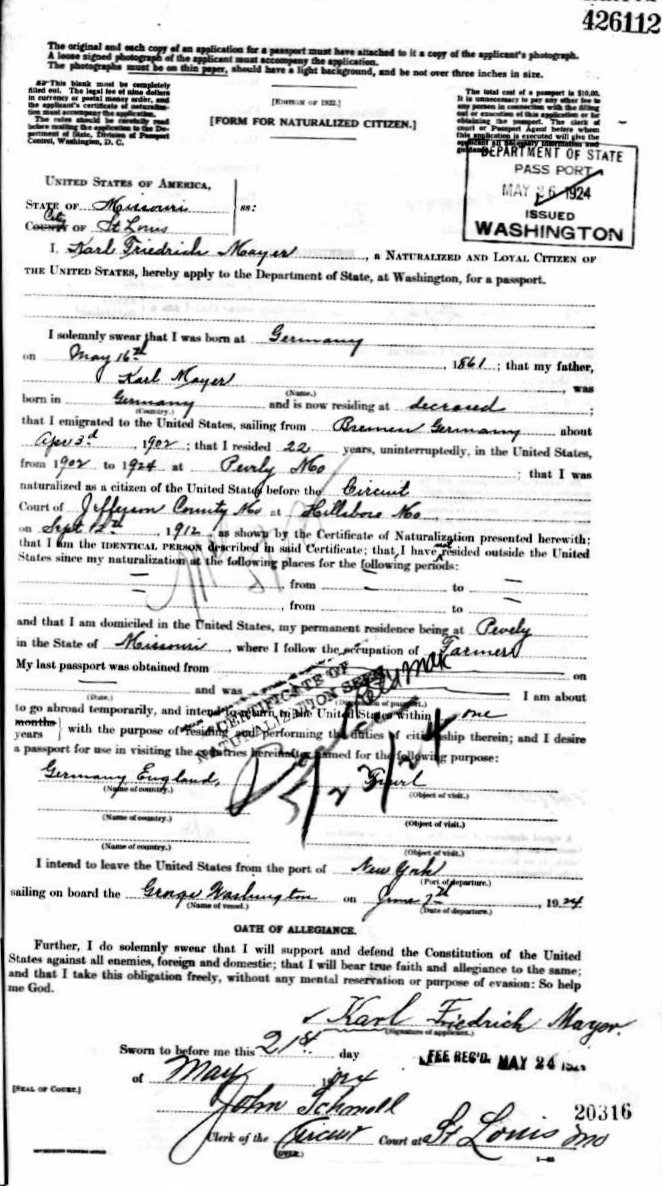 426112
The original and each copy of an application for a passport must have attached to it a copy of the applicant's photograph.
A loose signed photograph of the applicant must accompany the application.
The photographs must be on thin paper, should have a light background, and be not over three inches in size.
This blank must be completely
filled out. The legal fee of nine dollars
in currency or postal money order, and
the applicant's certificate of naturaliza-
tion must accompany the application.
The rules should be carefully read
before mailing the application to the De-
partment of State, Division of Passport
Control, Washington, D. C.
[EDITION OF 1922.]
[FORM FOR NATURALIZED CITIZEN.]
The total cost of a passport is $10.00.
It is unnecessary to pay any other fee to
any person in connection with the filling
out or execution of this application or for
obtaining the passport. The clerk of
court or Passport Agent before whom
this application is executed will give the
applicant all necessary information and
DEPARTMENT OF STATE
PASSPORT
MAY 26 1924
ISSUED
WASHINGTON
UNITED STATES OF AMERICA,
STATE OF Missouri
ss:
City
COUNTY OF St Louis
I, Karl Friedrich Mayer, a NATURALIZED AND LOYAL CITIZEN OF
THE UNITED STATES, hereby apply to the Department of State, at Washington, for a passport.
I solemnly swear that I was born at Germany
on May 16th, 1861; that my father,
Karl Mayer, was
(Name.)
born in Germany and is now residing at deceased;
(Country.)
that I emigrated to the United States, sailing from Bremen Germany about
Apr 3d, 1902; that I resided 22 years, uninterruptedly, in the United States,
from 1902 to 1924 at Pevely Mo; that I was
naturalized as a citizen of the United States before the Circuit
Court of Jefferson County Mo at Hillsboro Mo,
on Sept 12th, 1912, as shown by the Certificate of Naturalization presented herewith;
that I am the IDENTICAL PERSON described in said Certificate; that I have not resided outside the United
States since my naturalization at the following places for the following periods:
—, from — to —
—, from — to —
and that I am domiciled in the United States, my permanent residence being at Pevely
in the State of Missouri, where I follow the occupation of Farmer
My last passport was obtained from on
and was I am about
(Date.) (Disposition of passport.)
CERTIFICATE OF
NATURALIZATION SEEN
to go abroad temporarily, and intend to return to the United States within one
months
years } with the purpose of residing and performing the duties of citizenship therein; and I desire
a passport for use in visiting the countries hereinafter named for the following purpose:
5/24/24
Germany England, Travel
(Name of country.) (Object of visit.)
(Name of country.) (Object of visit.)
(Name of country.) (Object of visit.)
I intend to leave the United States from the port of New York
(Port of departure.)
sailing on board the George Washington on June 7th, 1924
(Name of vessel.) (Date of departure.)
OATH OF ALLEGIANCE.
Further, I do solemnly swear that I will support and defend the Constitution of the United
States against all enemies, foreign and domestic; that I will bear true faith and allegiance to the same;
and that I take this obligation freely, without any mental reservation or purpose of evasion: So help
me God.
Karl Friedrich Mayer.
(Signature of applicant.)
Sworn to before me this 21st day
FEE REC'D. MAY 24
of May 1924
[SEAL OF COURT.]
John Schmoll
20316
Clerk of the Circuit Court at St Louis Mo
(OVER.)
GOVERNMENT PRINTING OFFICE